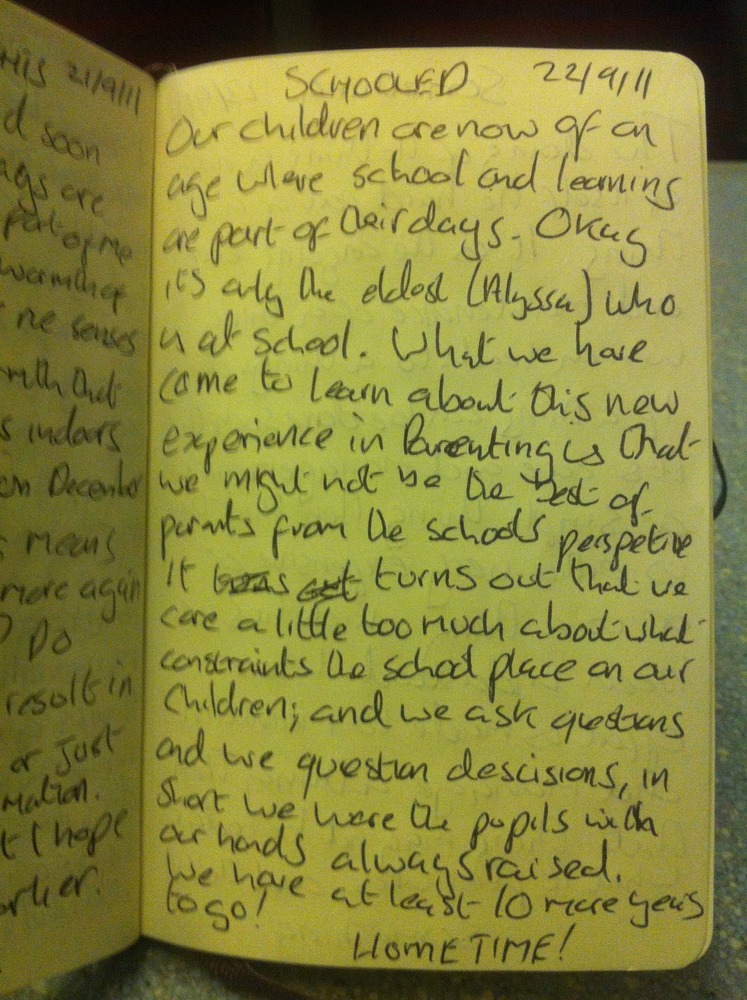 HIS 21/9/11
d soon
ags are
part of me
warmth of
ne senses
with that
s indoors
on December
s means
more again
? Do
result in
or just
mation.
t I hope
orker.
SCHOOLED 22/9/11
Our children are now of an
age where school and learning
are part of their days. Okay
it's only the eldest (Alyssa) who
is at school. What we have
come to learn about this new
experience in Parenting is that
we might not be the best of
parents from the schools perspetive
It turns out that we
care a little too much about what
constraints the school place on our
Children; and we ask questions
and we question descisions, in
short we were the pupils with
our hands always raised.
We have at least 10 more years
to go!
HOMETIME!